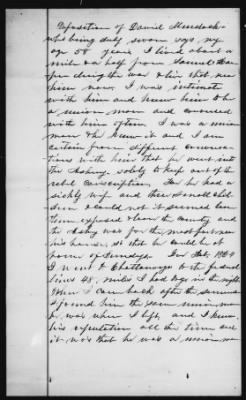 Deposition of David Murdock
who being duly sworn says, my
age 58 years I lived about a
mile & a half from Samuel
per during the war & live that near
him now. I was intimate
with him and knew him to be
a union man and conversed
with him often. I was a union
man & he knew it and I am
certain from different conversa-
tions with him that he went into
the solely to keep out of the
rebel conscription. For he had a
sickly wife and three small child-
ren & could not it seemed leave
them exposed & leave the country and
the was for the most part near
his home, so that he could be at
home of Sundays. In Feb. 1864
I went to Chattanooga to the federal
lines 48 miles I had to go in the night.
When I came back after the surrender
I found him the same union man
he was when I left, and I know
his reputation all the time and
it was that he was a union man